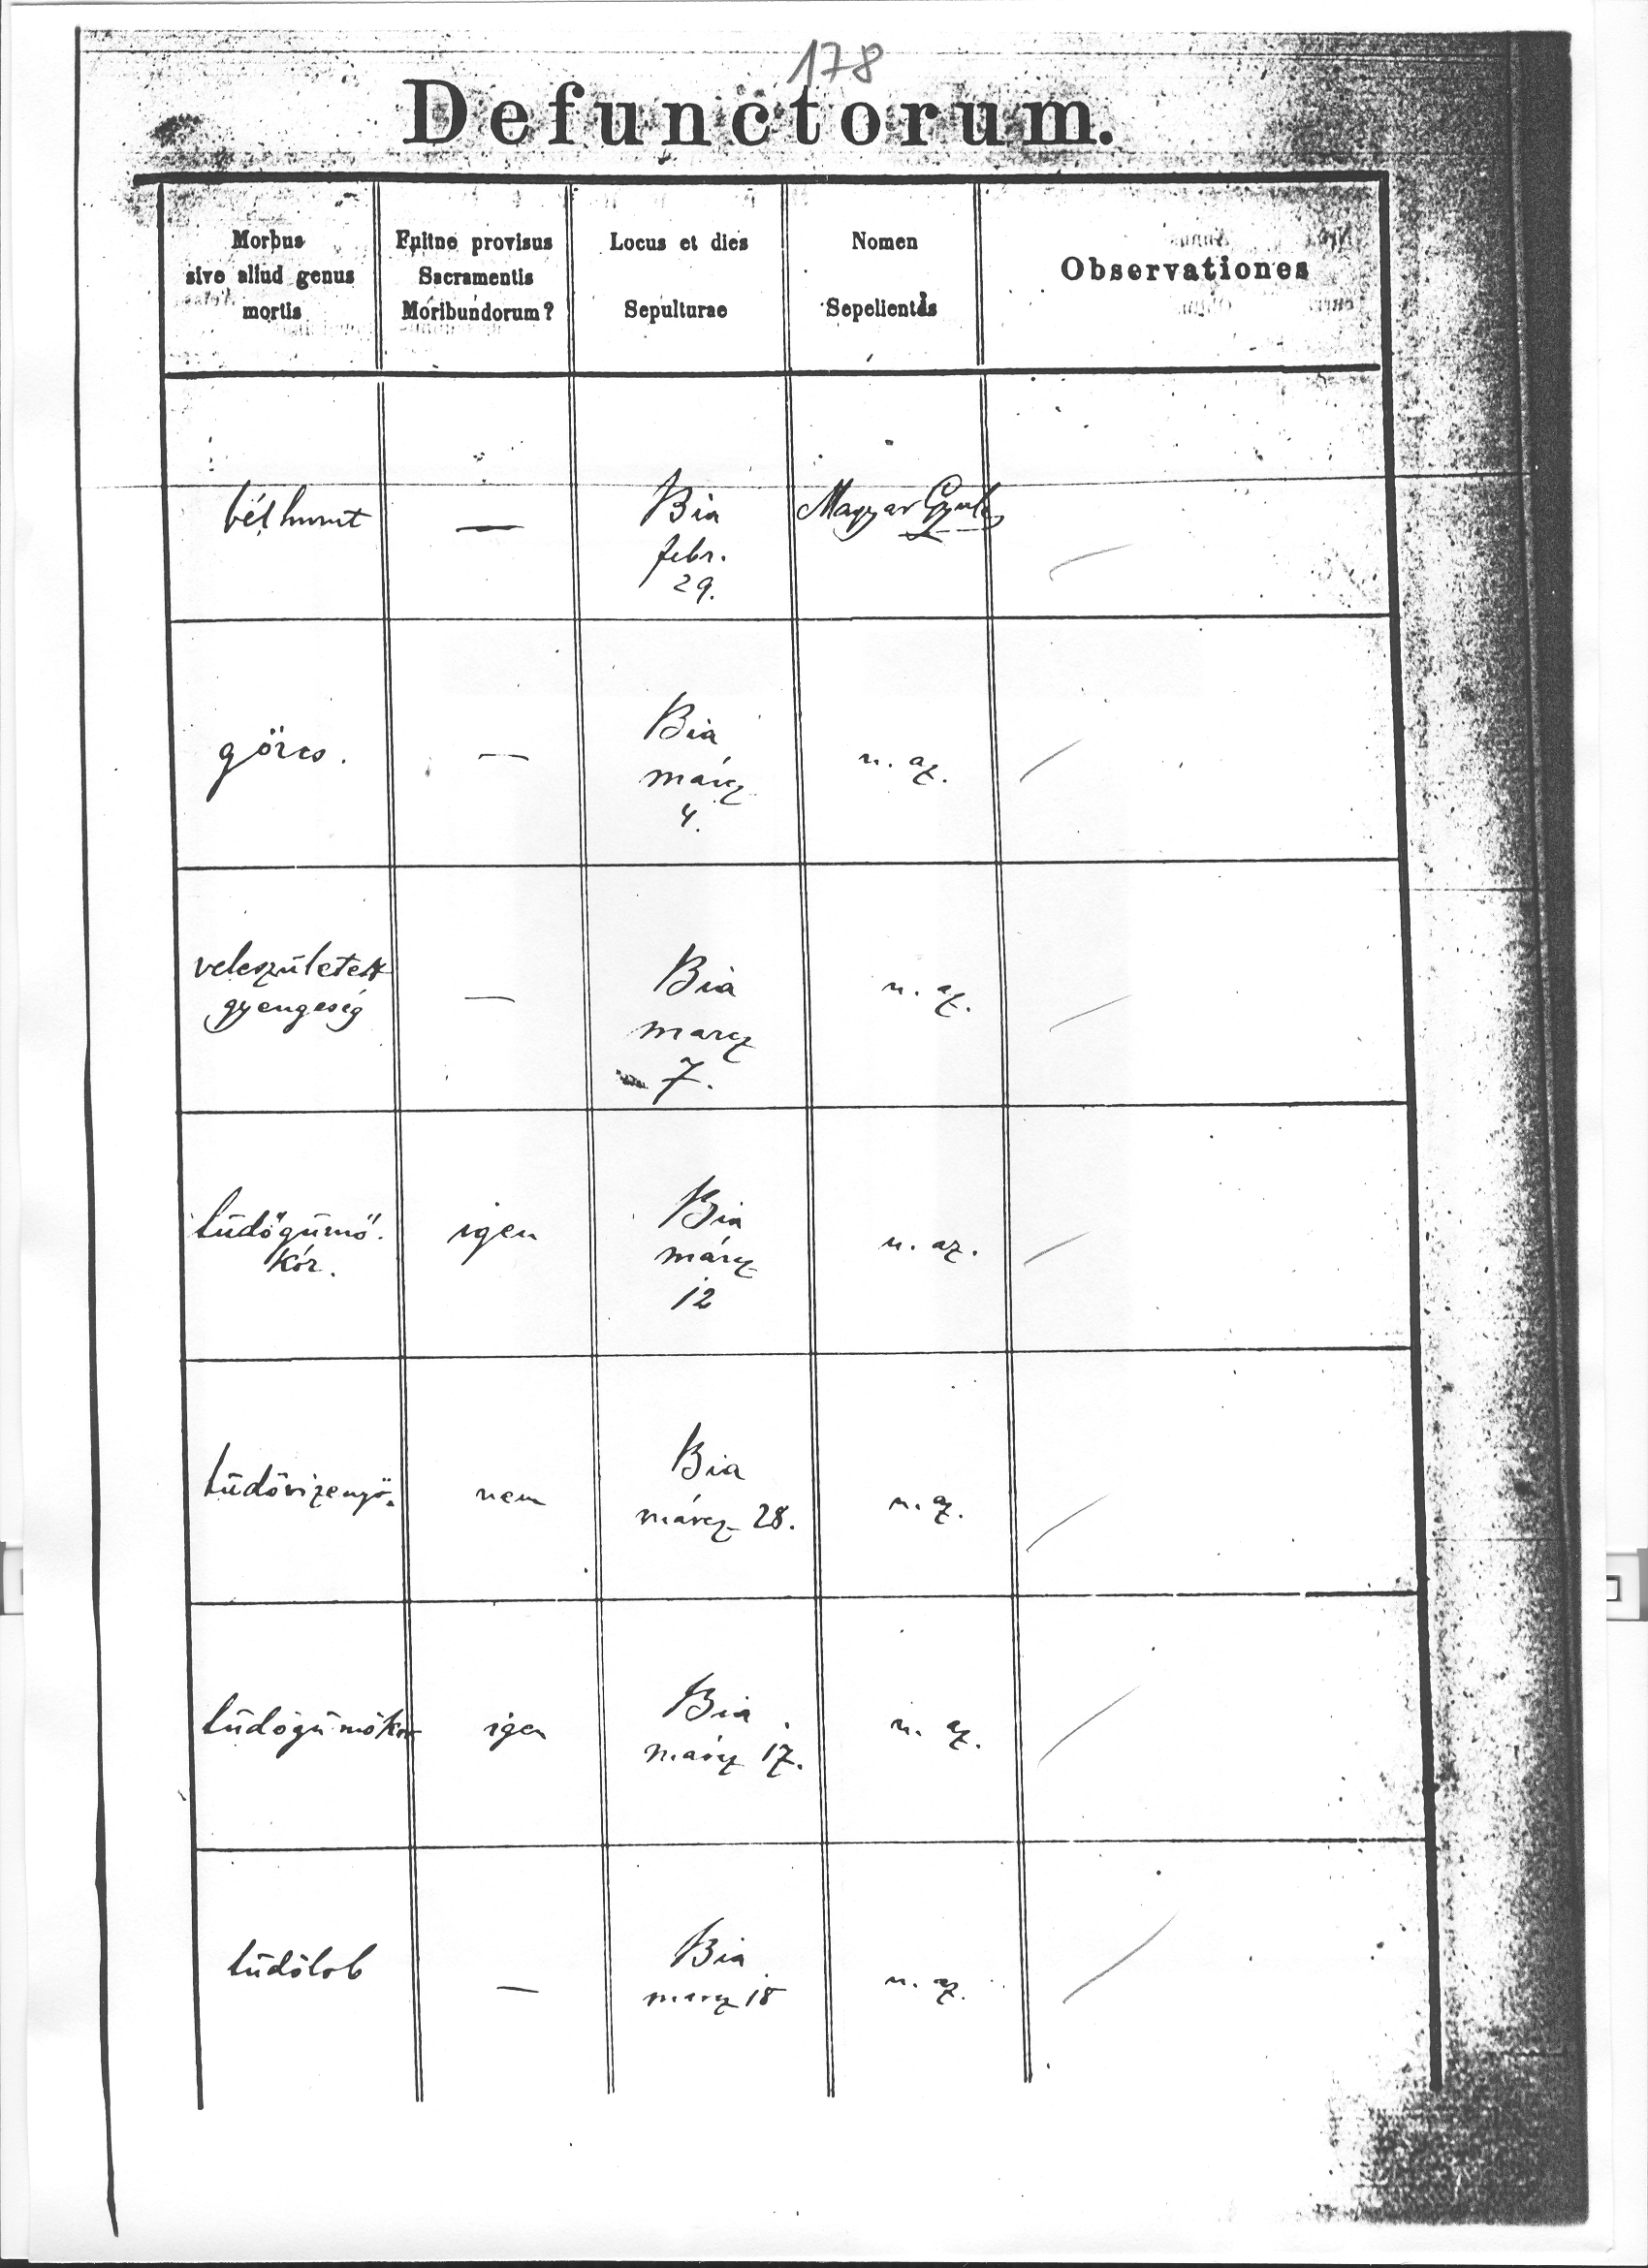 178
Defunctorum.
Morbus
sive aliud genus
mortis
Fuitne provisus
Sacramentis
Moribundorum?
Locus et dies
Sepulturae
Nomen
Sepelientis
Observationes
bélhurut
—
Bia
febr.
29.
Magyar Gyula
görcs.
—
Bia
márcz
4.
u. az.
veleszületett
gyengeség
—
Bia
marcz
7.
u. az.
tüdőgümő
kór.
igen
Bia
márcz
12
u. az.
tüdővizenyő.
nem
Bia
márcz 28.
u. az.
tüdőgümőkór
igen
Bia
márcz 17.
u. az.
tüdőlob
—
Bia
marcz 18
u. az.